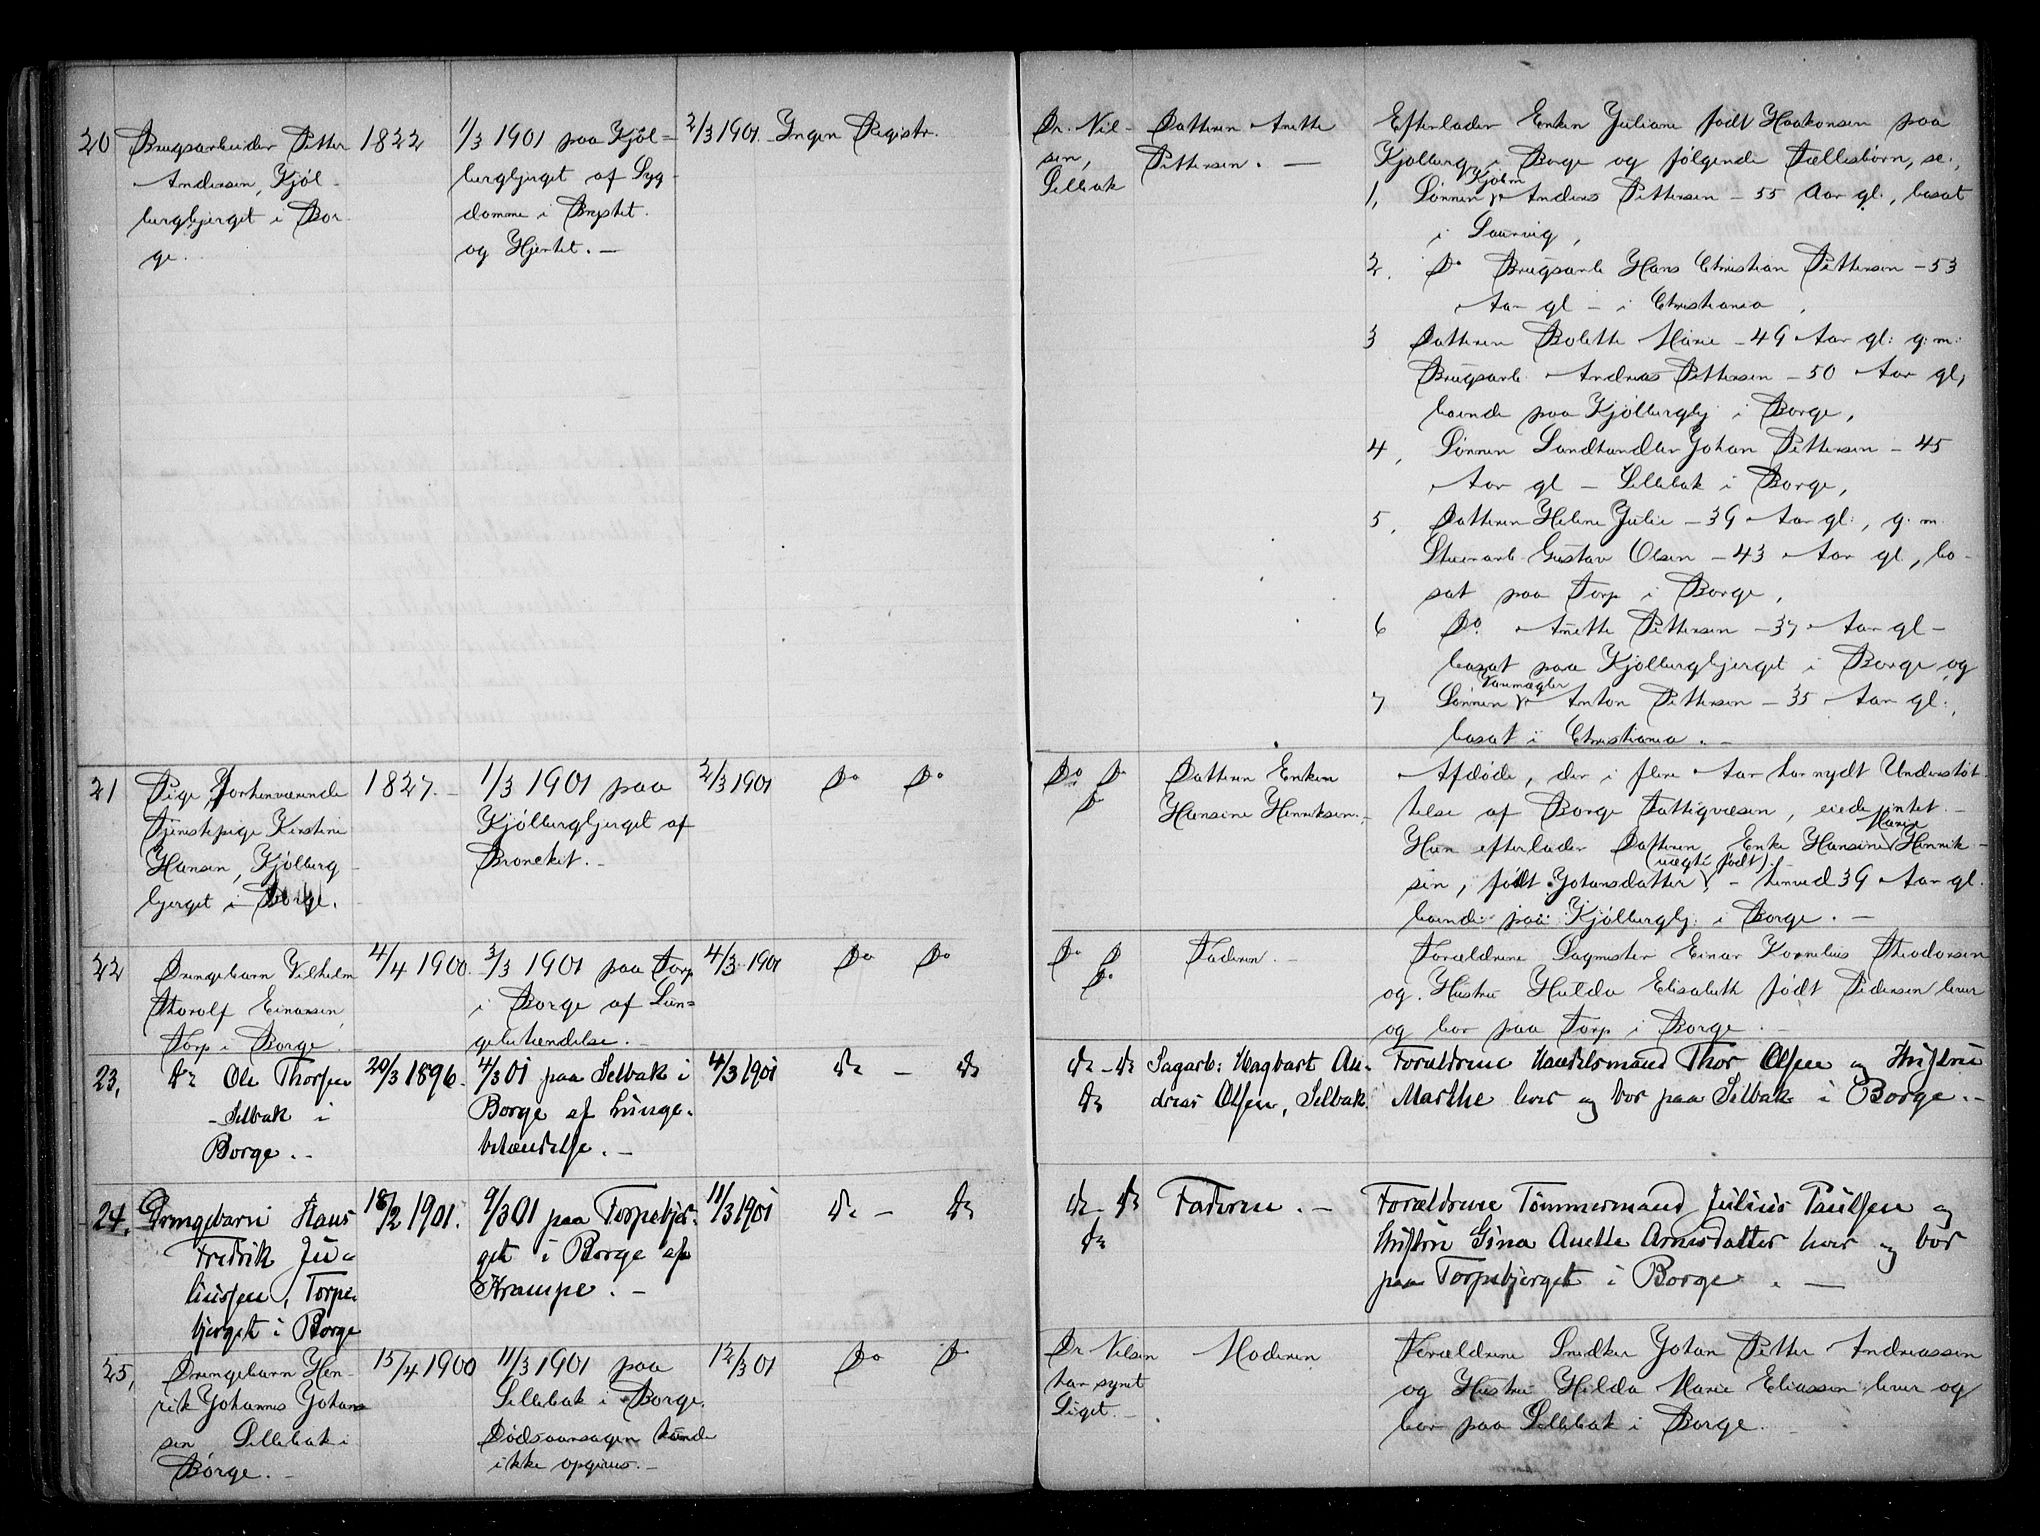 20 Brugsarbeider Petter
Andersen, Kjöl-
bergbjerget i Bor-
ge.
1822
1/3 1901 paa Kjöl-
bergbjerget af Syg-
domme i Brystet
og Hjertet. —
2/3 1901.
Ingen Registr.
Dr. Nil-
sen,
Selbak
Datteren Anette
Pettersen. —
Efterlader Enken Juliane födt Haakonsen paa
Kjölberg i Borge og fölgende Fællesbörn, se.;
1, Sönnen Anders Pettersen – 55 Aar gl., bosat
i Laurvig,
2. Do Brugsarb Hans Christian Pettersen – 53
Aar gl – i Christiania,
3 Datteren Bolette Marie – 49 Aar gl: g: m:
Brugsarb. Andreas Pettersen – 50 Aar gl,
boende paa Kjölbergbj i Borge,
4, Sönnen Landhandler Johan Pettersen – 45
Aar gl – Sellebak i Borge,
5, Datteren Helene Julie – 39 Aar gl., g. m.
Stuerarb Gustav Olsen – 43 Aar gl, bo-
sat paa Torp i Borge,
6 Do. Anette Pettersen – 37 Aar gl –
bosat paa Kjölbergbjerget i Borge og
7 Sönnen Varemægler Anton Pettersen – 35 Aar gl.,
bosat i Christiania. –
21 Pige, forhenværende
Tjenestepige Kirstine
Hansen, Kjölberg
bjerget i Borge.
1827. –
1/3 1901 paa
Kjölbergbjerget af
Bronckit. –
2/3 1901
Do Do
Do Do
Do
Datteren Enken
Hansine Henriksen. –
Afdöde, der i flere Aar har nydt Understöt-
telse af Borge Fattigvæsen, eiede intet. –
Hun efterlader Datteren Enke Hansine Marie Henrik-
sen, födt Johansdatter (uægte födt) – henved 39 Aar gl.
boende paa Kjölbergbj. i Borge. –
22 Drengebarn Vilhelm
Thorolf Einarsen,
Torp i Borge.
4/4 1900.
3/3 1901 paa Torp
i Borge af Lun-
gebetændelse. –
4/3 1901
Do Do
Do D
Do
Faderen. –
Forældrene Sagmester Einar Kornelius Theodorsen
og Hustru Hulda Elisabeth födt Pedersen lever
og bor paa Torp i Borge. –
23, do Ole Thorsen
– Selbak i
Borge. –
20/3 1896.
4/3 01 paa Selbak i
Borge af Lunge-
betændelse. –
4/3 1901
do – do
do – do
do
Sagarb: Hagbart An-
dreas Olsen, Selbak
Forældrene Handelsmand Thor Olsen og Hustru
Marthe lever og bor paa Selbak i Borge. –
24. Drengebarn Hans
Fredrik Ju-
liussen, Torpe-
bjerget i Borge
18/2 1901.
9/3 01 paa Torpebjer-
get i Borge af
Krampe. –
11/3 1901
do – do
do – do
do
Faderen. –
Forældrene Tömmermand Julius Paulsen og
Hustru Gina Anette Arnesdatter lever og bor
paa Torpebjerget i Borge. —
25, Drengebarn Hen-
rik Johannes Johan-
sen Sellebak i
Borge. –
15/4 1900
11/3 1901 paa
Sellebak i Borge.
Dödsaarsagen kunde
ikke opgives. –
12/3 01
Do D
Dr Nilsen
har synet
Liget. –
Moderen
Forældrene Snedker Johan Petter Andreassen
og Hustru Hilda Marie Eliassen lever og
bor paa Sellebak i Borge.